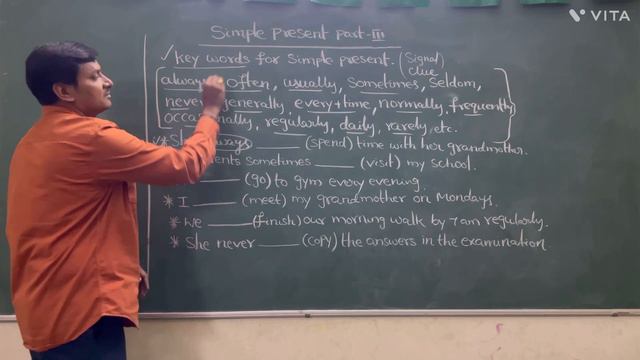 Simple present part-III
VITA
✓ Key words for Simple present. (Signal clue
always, often, usually, Sometimes, Seldom,
never, generally, every+time, normally, frequently
regularly, daily, rarely, etc.
* She always ____ (spend) time with her grandmother.
sometimes ____ (visit) my school.
____ (go) to gym every evening.
* I ____ (meet) my grandmother on Mondays.
* We ____ (finish) our morning walk by 7 am regularly.
* She never ____ (copy) the answers in the examination.